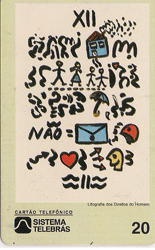 XII
NÃO =
=II=
Litografia dos Direitos do Homem
CARTÃO TELEFÔNICO
SISTEMA
TELEBRÁS
20